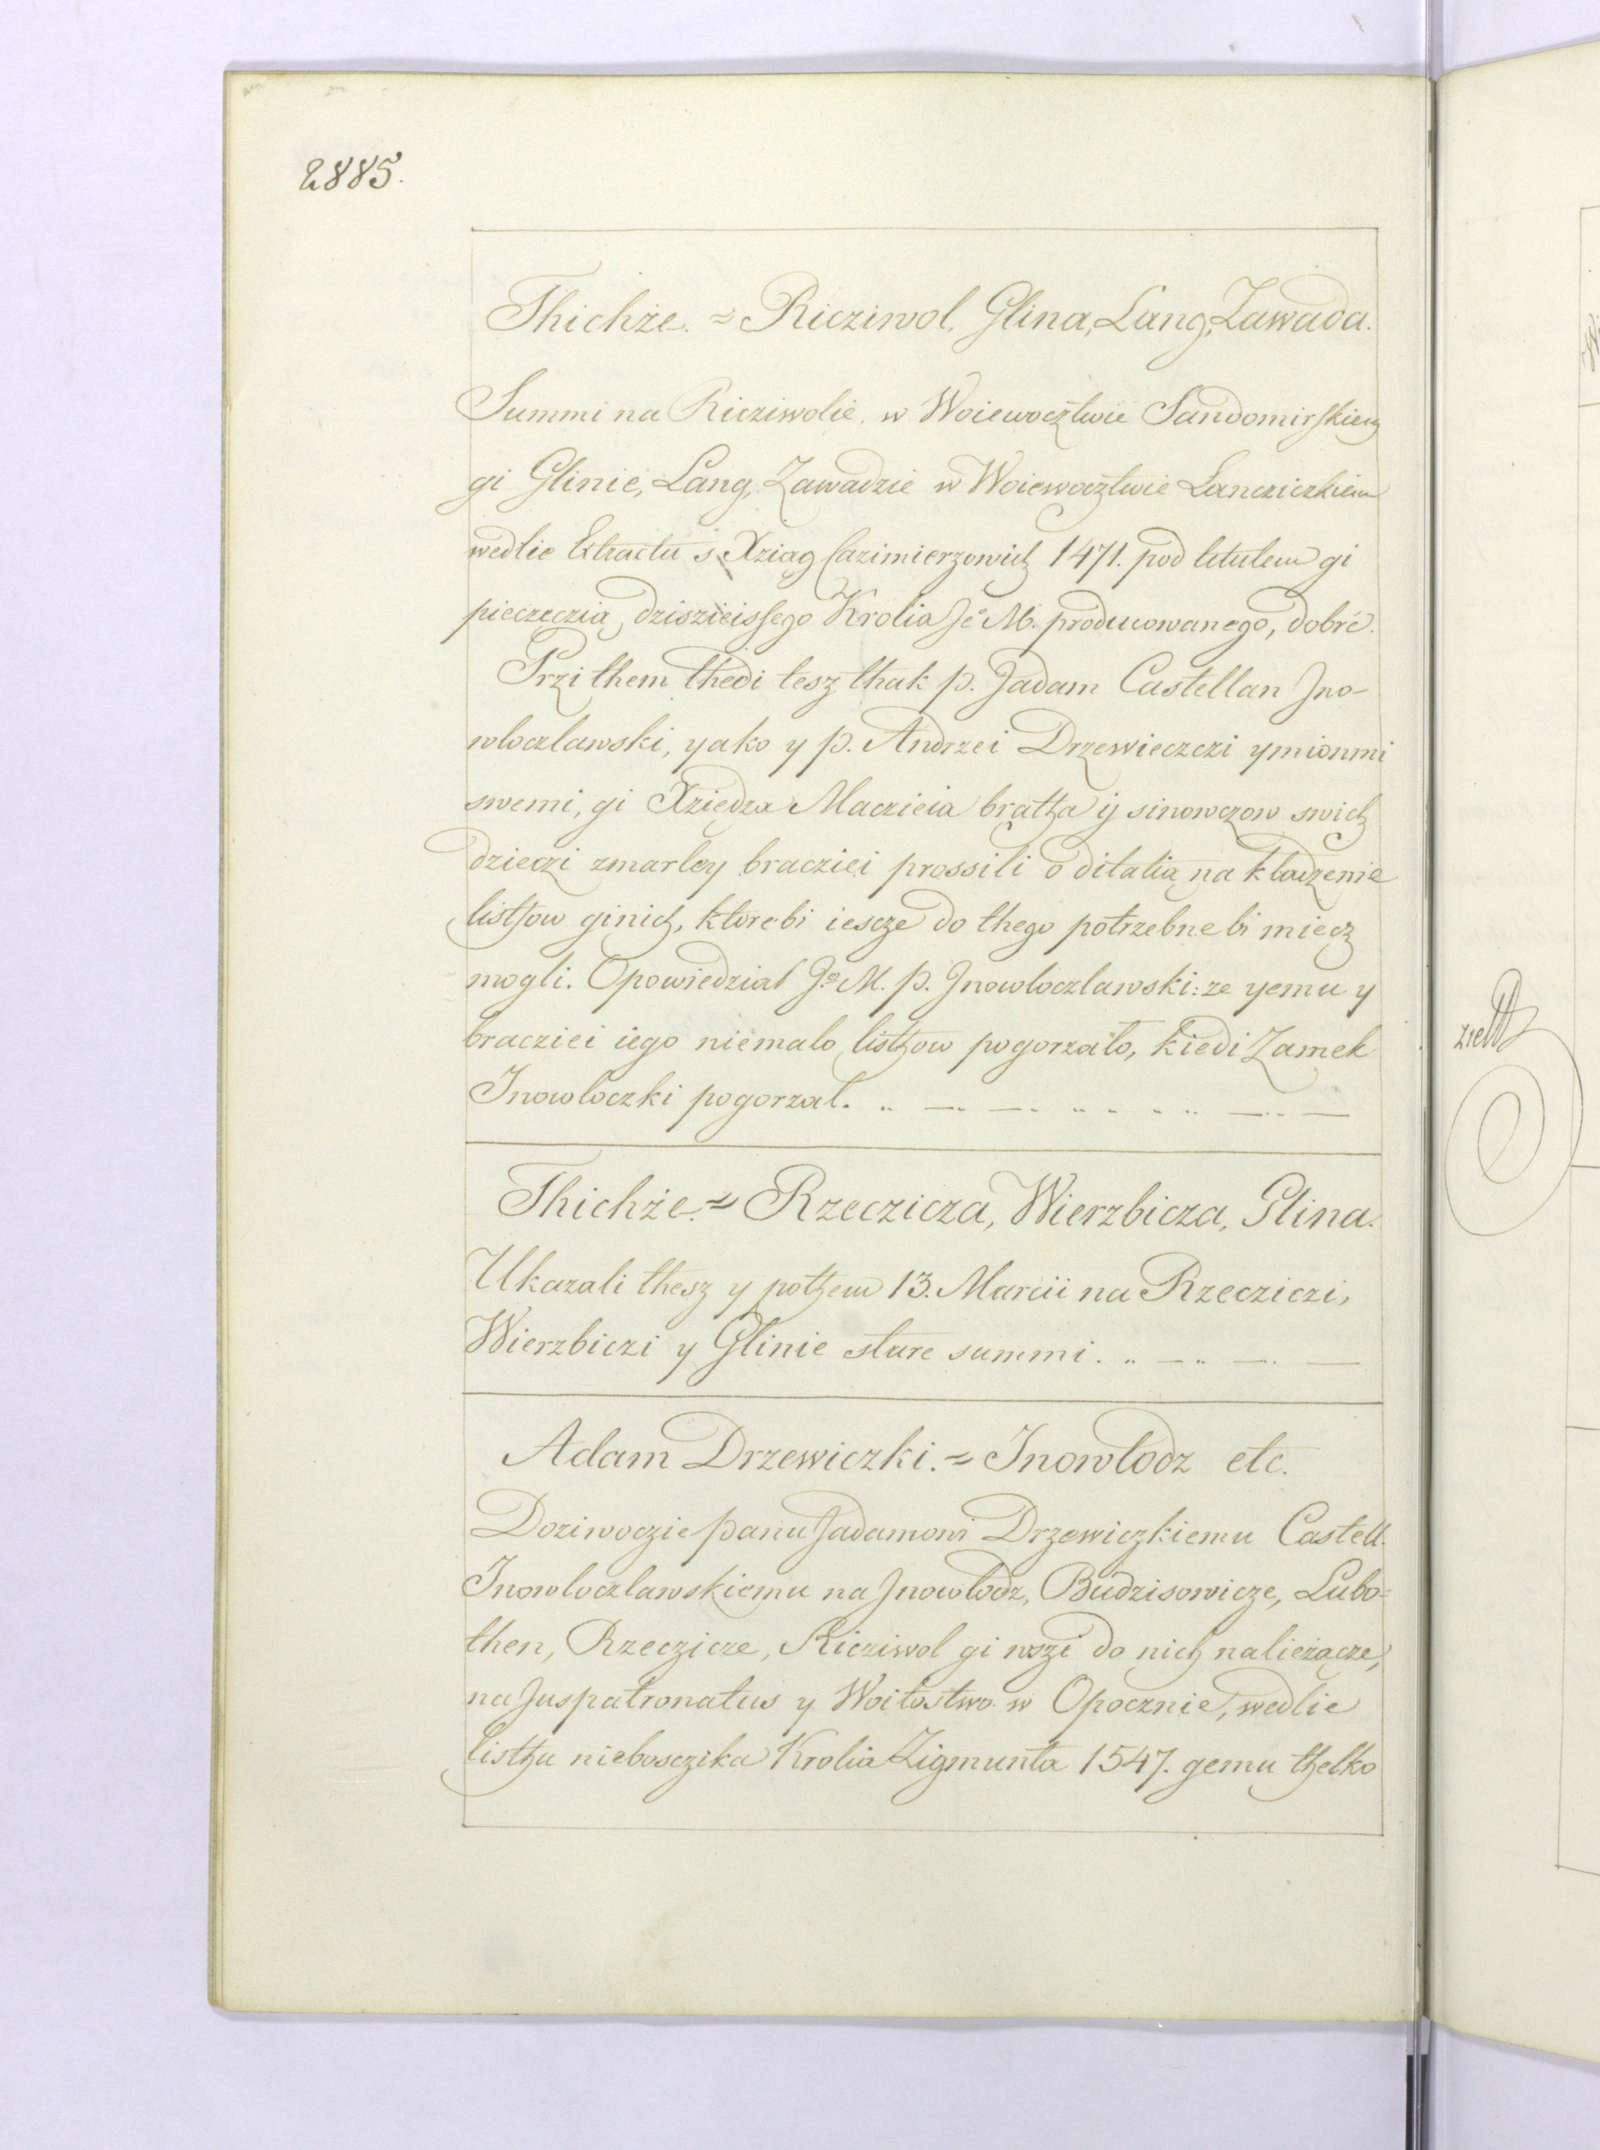 2885.
Thichże. = Ricziwol, Glina, Lang, Zawada.
Summi na Ricziwolie, w Woiewocztwie Sandomirskiem
gi Glinie, Lang, Zawadzie w Woiewocztwie Lancziczkiem
wedlie Extractu s Xziąg Cazimierzowich 1471. pod titulem gi
pieczęczią dziszieissego Krolia Je M. producowanego, dobré.
Przi them thedi tesz thak p. Jadam Castellan Jno-
wloczlawski, yako y p. Andrzei Drzewieczczi ymionmi
swemi, gi Xziędza Maczieia brattza ij sinowczow swich
dzieczi zmarley bracziei prossili o dilatią na kladzenie
listhow ginich, ktorebi iescze do thego potrzebne bi miecz
mogli. Opowiedzial Jo M. p. Jnowloczlawski: ze yemu y
bracziei iego niemalo listhow pogorzało, kiedi Zamek
Inowloczki pogorzal.
Thichże = Rzeczicza, Wierzbicza, Glina.
Ukazali thesz y pothem 13. Marcii na Rzecziczi,
Wierzbiczi y Glinie stare summi.
Adam Drzewiczki. = Inowłodz etc.
Doziwoczie panu Jadamowi Drzewiczkiemu Castell.
Inowloczlawskiemu na Jnowłodz, Budzisowicze, Lubo-
then, Rzeczicze, Ricziwol gi wszi do nich nalieżącze,
na Juspatronatus y Woitostwo w Opocznie, wedlie
listhu niebosczika Krolia Zigmunta 1547. gemu thelko